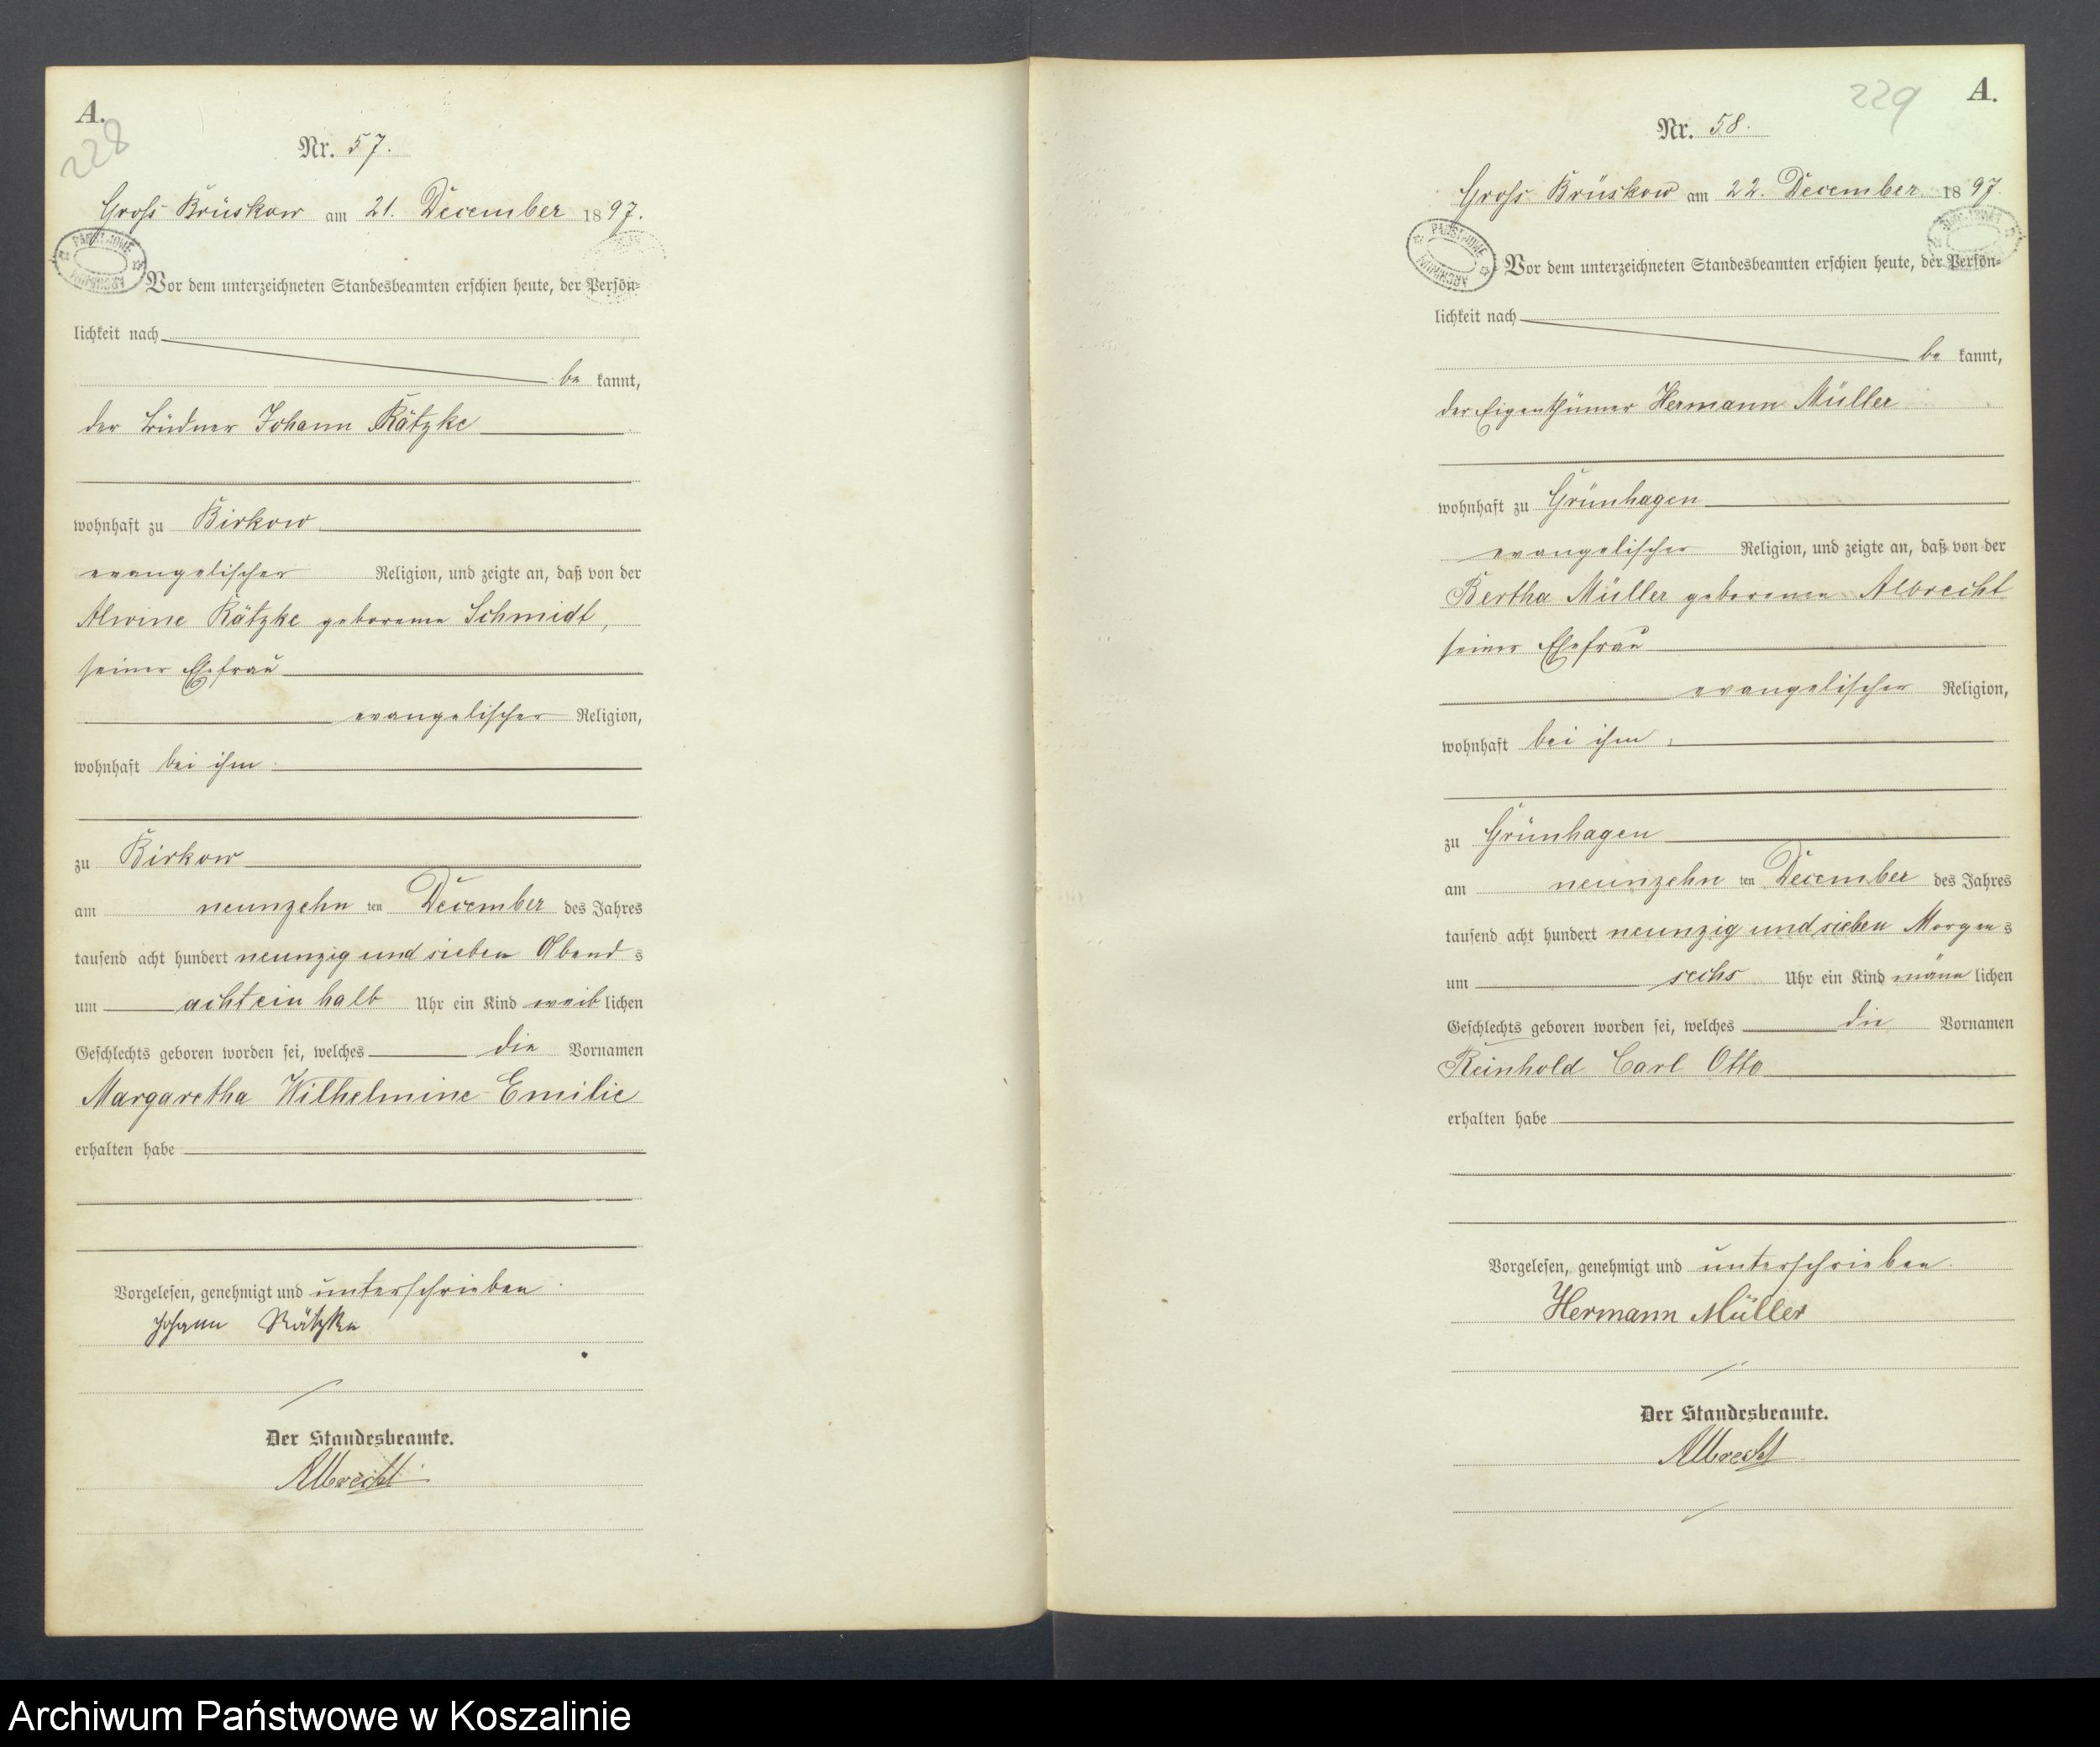 A.
228
Nr. 57.
Gross Brüskow am 21. December 1897.
Vor dem unterzeichneten Standesbeamten erschien heute, der Persön=
lichkeit nach
be kannt,
der Büdner Johann Rätzke
wohnhaft zu Birkow
evangelischer Religion, und zeigte an, daß von der
Alwine Rätzke geborene Schmidt,
seiner Ehefrau
evangelischer Religion,
wohnhaft bei ihm
zu Birkow
am neunzehn ten December des Jahres
tausend acht hundert neunzig und sieben Abends
um achteinhalb Uhr ein Kind weib lichen
Geschlechts geboren worden sei, welches die Vornamen
Margaretha Wilhelmine Emilie
erhalten habe
Vorgelesen, genehmigt und unterschrieben.
Johann Rätzke
Der Standesbeamte.
Albrecht
229
A.
Nr. 58.
Gross Brüskow am 22. December 1897.
PAŃSTWOWE
ARCHIWUM
Vor dem unterzeichneten Standesbeamten erschien heute, der Persön=
lichkeit nach
be kannt,
der Eigenthümer Hermann Müller
wohnhaft zu Grünhagen
evangelischer Religion, und zeigte an, daß von der
Bertha Müller geborenen Albrecht
seiner Ehefrau
evangelischer Religion,
wohnhaft bei ihm
zu Grünhagen
am neunzehn ten December des Jahres
tausend acht hundert neunzig und sieben Morgens
um sechs Uhr ein Kind männ lichen
Geschlechts geboren worden sei, welches die Vornamen
Reinhold Carl Otto
erhalten habe
Vorgelesen, genehmigt und unterschrieben.
Hermann Müller
Der Standesbeamte.
Albrecht
Archiwum Państwowe w Koszalinie